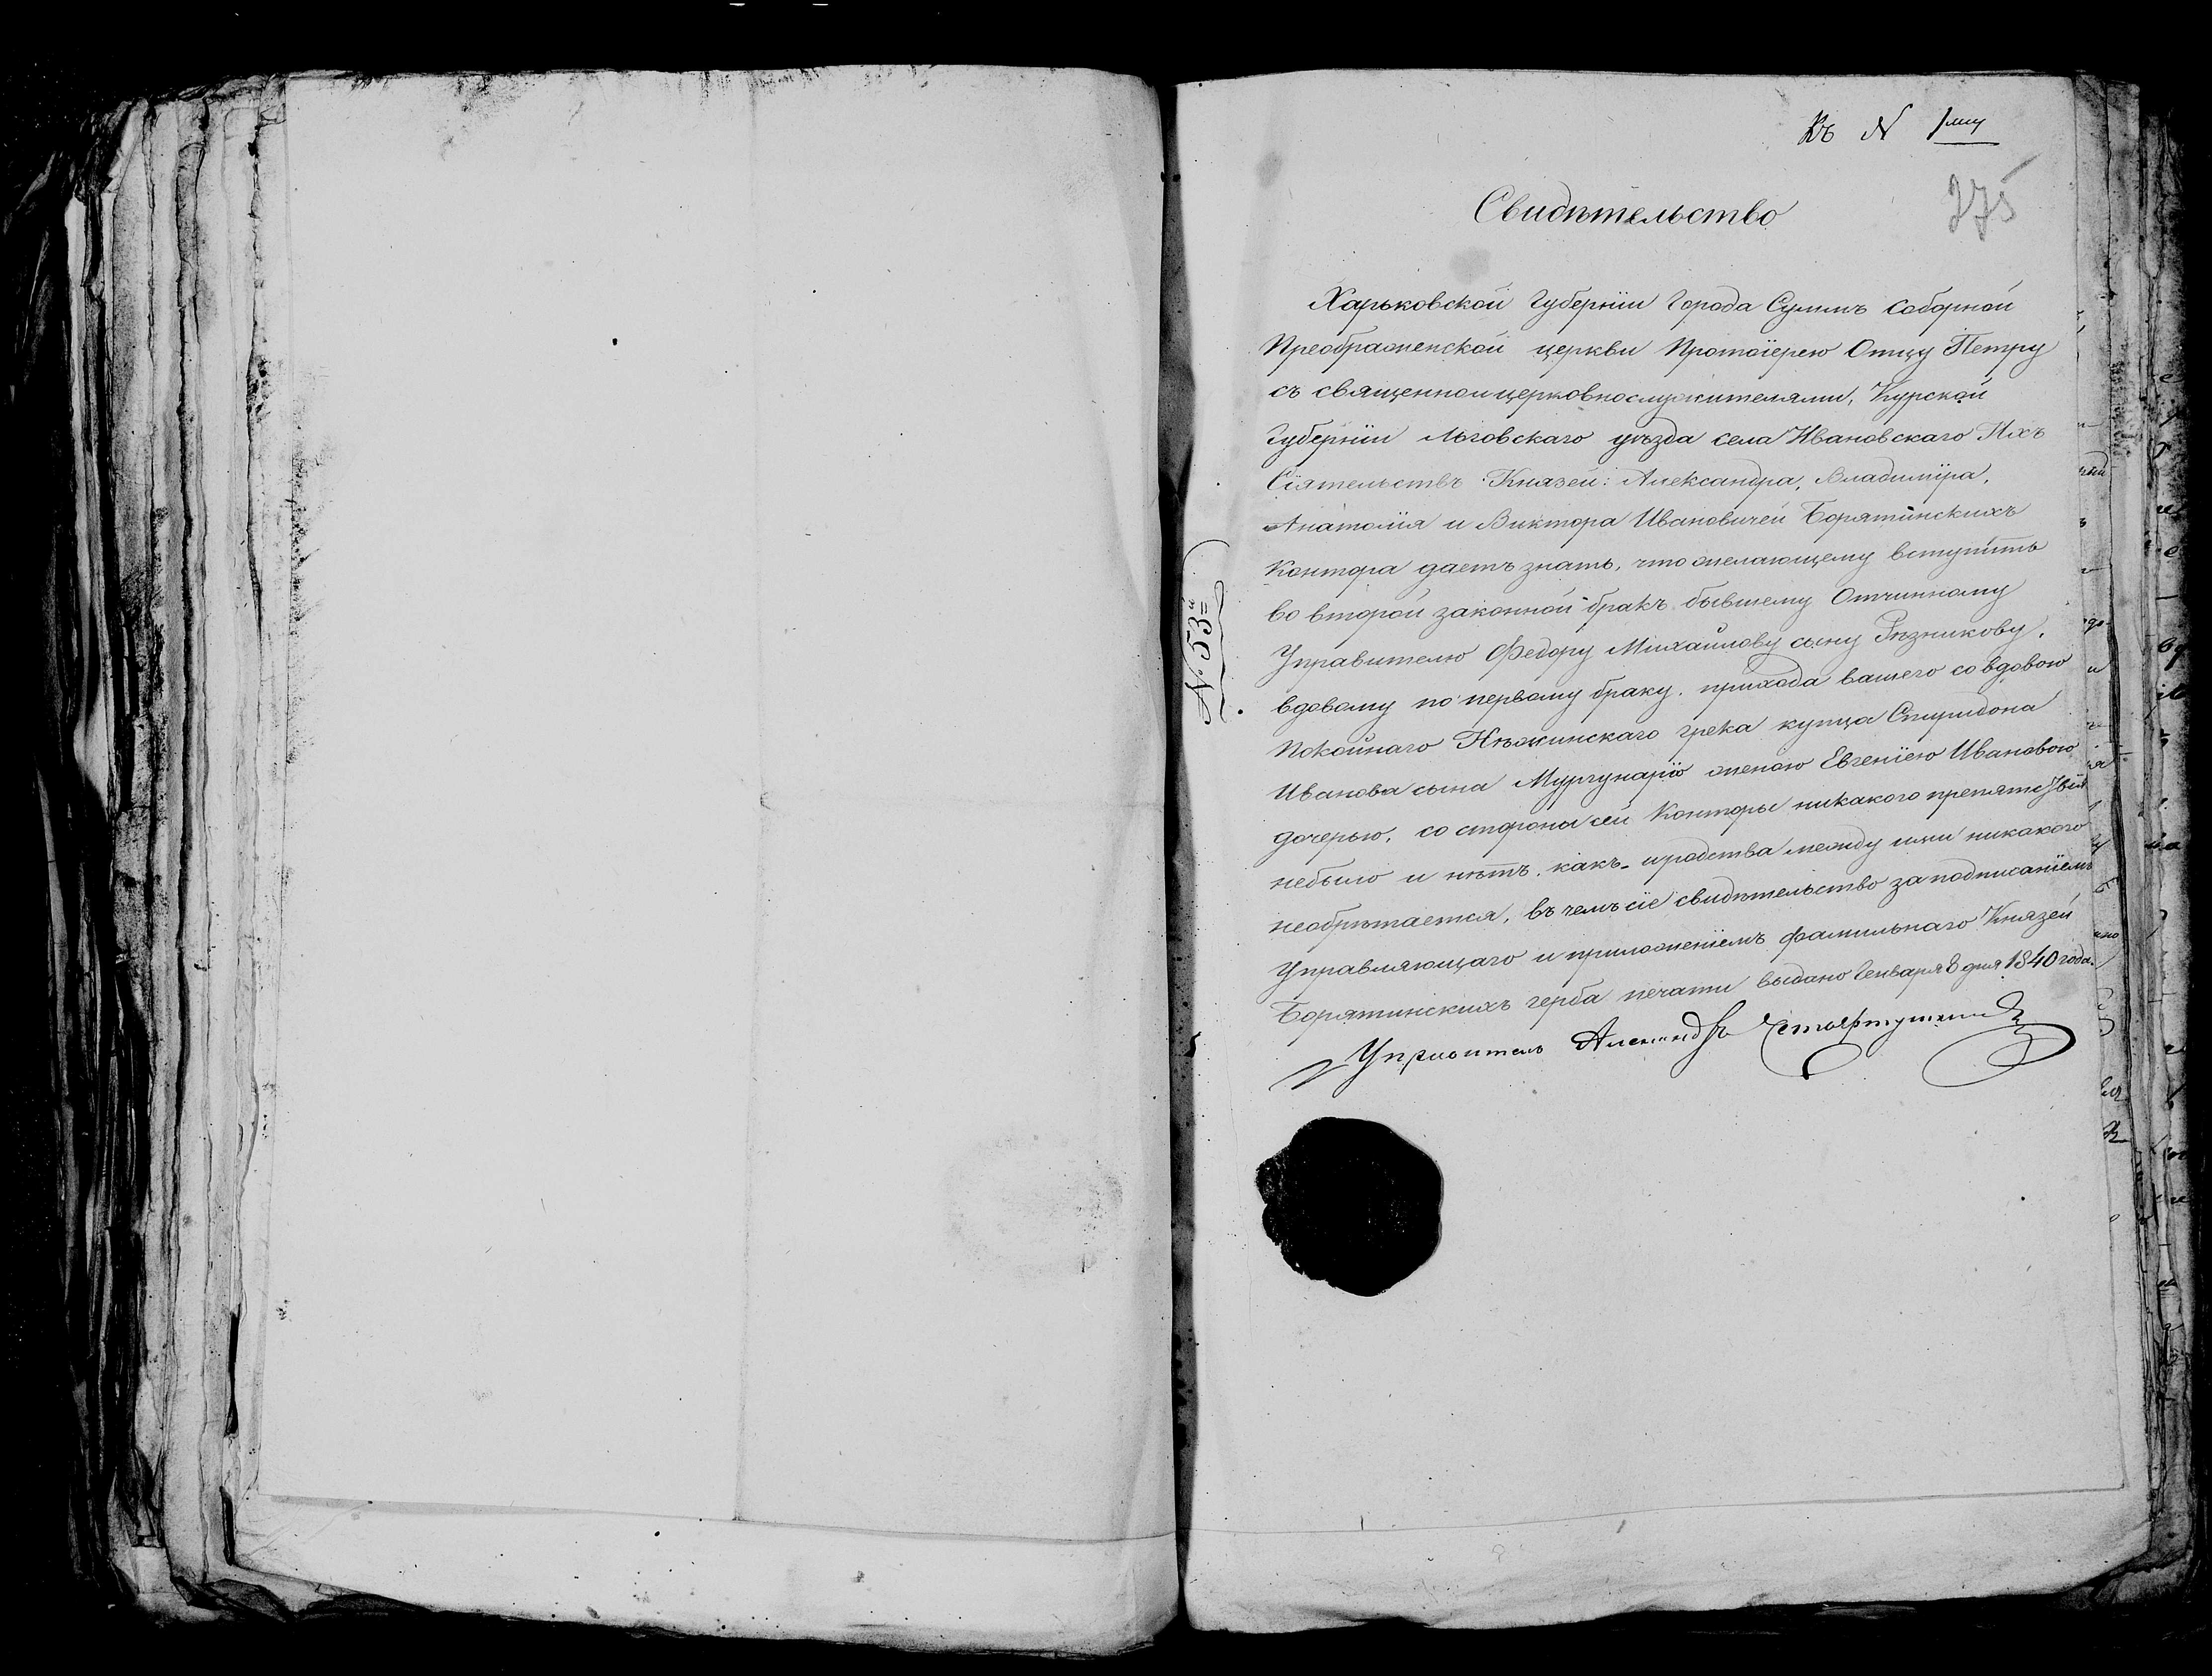 Къ № 1му
375
Свидѣтельство
Харьковской Губерніи Города Суммъ Соборной
Преображенской церкви Протоіерею Отцу Петру
съ священноицерковнослужителями, Курской
Губерніи Льговскаго уѣзда села Ивановскаго Ихъ
Сіятельствъ Князей: Александра, Владиміра,
Анатолія и Виктора Ивановичей Борятинскихъ
Контора даетъ знать, что желающему вступить
во второй законной бракъ бывшему Отчинному
Управителю Федору Михайлову сыну Рѣзникову,
вдовому по первому браку, прихода вашего со вдовою
покойнаго Нѣжинскаго грека купца Спиридона
Иванова сына женою Евгеніею Ивановою
дочерью, со стороны сей Конторы никакого препятствія
небыло и нѣтъ, какъ и родства между ими никакого
необрѣтается, въ чемъ сіе свидѣтельство за подписаніемъ
Управляющаго и приложеніемъ фамильнаго Князей
Борятинскихъ герба печати выдано Генваря 8 дня 1840 года.
Управитель Александръ
№ 53й